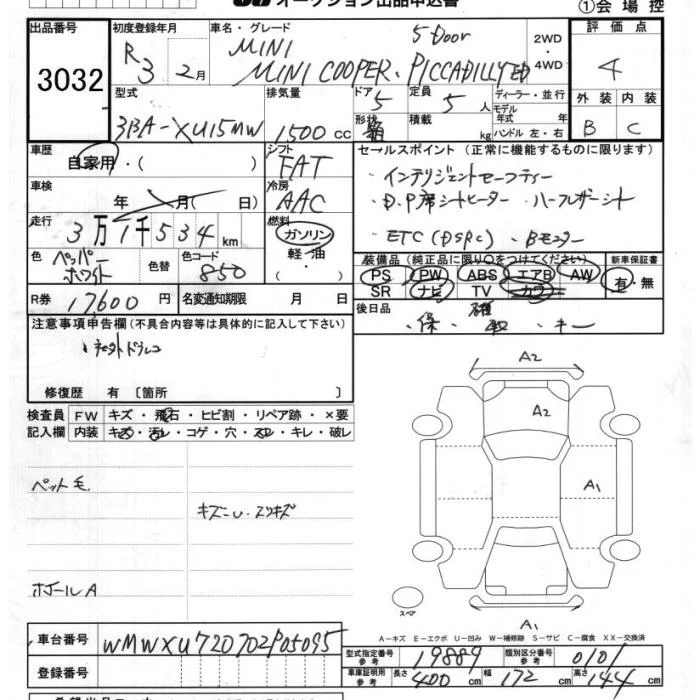 オークション出品申込書
①会場控
出品番号 3032
初度登録年月 R3 2月
車名・グレード MINI 5Door
MINI COOPER.PICCADILLY ED
2WD・4WD
評価点 4
型式 3BA-XU15MW
排気量 1500cc
ドア 5
定員 5人
ディーラー・並行
モデル年式 年式
外装 B
内装 C
形状 箱
積載 kg
ハンドル 左・右
車歴 自家用・( )
シフト FAT
セールスポイント(正常に機能するものに限ります)
車検 年 月( 日)
冷房 AAC
・インテリジェントセーフティー
・D.P席シートヒーター ・ハーフレザーシート
・ETC(DSRC) ・Bモニター
走行 3万1千534km
燃料 ガソリン
軽・油
( )
色 ペッパーホワイト
色替
色コード 850
装備品(純正品に限り○をつけてください)
新車保証書
PS PW ABS エアB AW
SR ナビ TV カワ
有・無
R券 17600円
名変通知期限 月 日
後日品 ・保 ・取 ・キー
注意事項申告欄(不具合内容等は具体的に記入して下さい)
修復歴 有 〔箇所 〕
検査員記入欄
FW キズ・飛石・ヒビ割・リペア跡・×要
内装 キズ・汚レ・コゲ・穴・スレ・キレ・破レ
ペット毛
キズ
A2
A2
A1
A1
スペア
A-キズ E-エクボ U-凹み W-補修跡 S-サビ C-腐食 XX-交換済
車台番号 WMWXU720702P05095
登録番号
型式指定番号 参考 19889
類別区分番号 参考 0101
車庫証明用 参考 長さ 400cm 幅 172cm 高さ 144cm